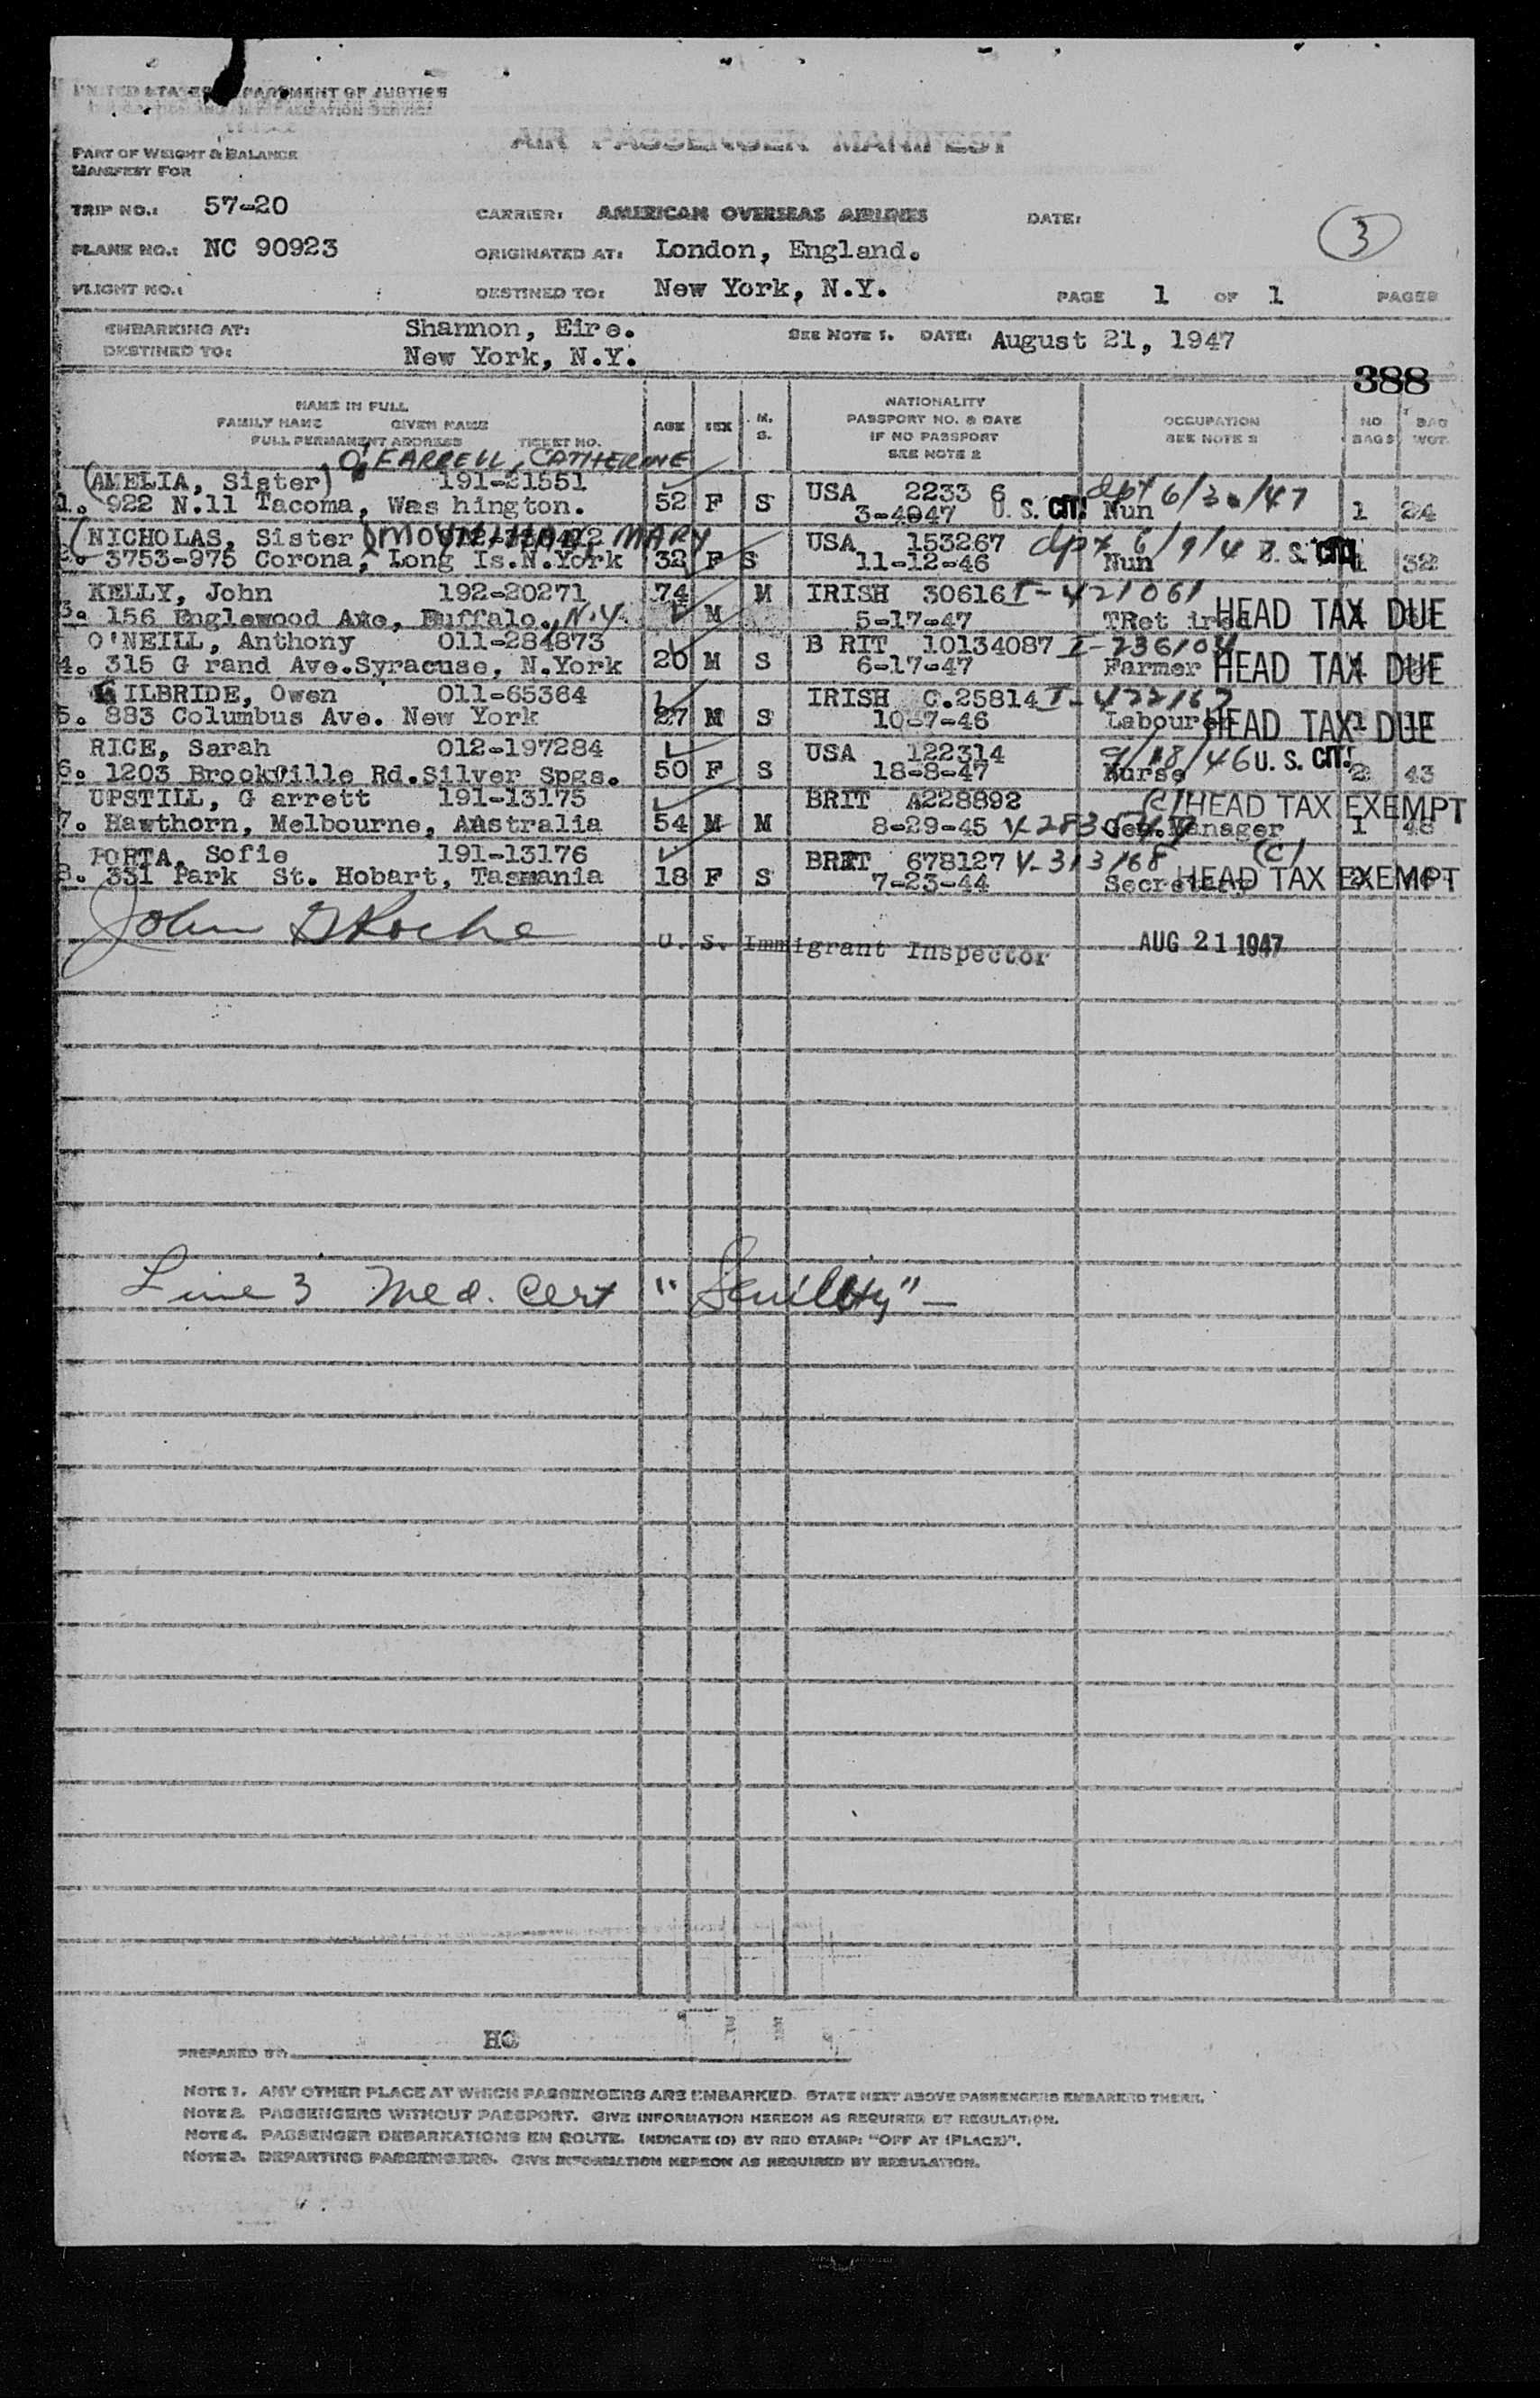 UNITED STATES DEPARTMENT OF JUSTICE
AIR PASSENGER MANIFEST
PART OF WEIGHT & BALANCE
MANIFEST FOR
TRIP NO.: 57-20
CARRIER: AMERICAN OVERSEAS AIRLINES DATE:
3
PLANE NO.: NC 90923 ORIGINATED AT: London, England.
FLIGHT NO.: DESTINED TO: New York, N.Y. PAGE 1 OF 1 PAGES
EMBARKING AT: Shannon, Eire. SEE NOTE 1. DATE: August 21, 1947
DESTINED TO: New York, N.Y.
388
NAME IN FULL
FAMILY NAME GIVEN NAME
FULL PERMANENT ADDRESS TICKET NO.
AGE SEX M. S.
NATIONALITY
PASSPORT NO. & DATE
IF NO PASSPORT
SEE NOTE 2
OCCUPATION
SEE NOTE 2
NO BAGS
BAG WGT.
O'FARRELL, CATHERINE
(AMELIA, Sister) 191-21551 USA 2233 6 dpt 6/30/47
1. 922 N.11 Tacoma, Was hington. 52 F S 3-4047 U. S. CIT. Nun 1 24
(NICHOLAS, Sister) MARY USA 153267 dpt 6/9/47 U. S. CIT.
2. 3753-975 Corona, Long Is.N.York 32 F S 11-12-46 Nun 1 32
KELLY, John 192-20271 74 M IRISH 30616 I-421061
3. 156 Englewood Ave, Buffalo., N.Y. M 5-17-47 TRet ired HEAD TAX DUE
O'NEILL, Anthony 011-284873 B RIT 10134087 I-236104
4. 315 G rand Ave.Syracuse, N.York 20 M S 6-17-47 Farmer HEAD TAX DUE
GILBRIDE, Owen 011-65364 IRISH C.25814 I-422167
5. 883 Columbus Ave. New York 27 M S 10-7-46 Labourer HEAD TAX DUE
RICE, Sarah 012-197284 USA 122314 9/18/46 U. S. CIT.
6. 1203 Brookville Rd.Silver Spgs. 50 F S 18-8-47 Nurse 2 43
UPSTILL, G arrett 191-13175 BRIT A228892 (C) HEAD TAX EXEMPT
7. Hawthorn, Melbourne, Australia 54 M M 8-29-45 Gen.Manager 1 48
PORTA, Sofie 191-13176 BRIT 678127 V-313168 (C)
8. 331 Park St. Hobart, Tasmania 18 F S 7-23-44 Secretary HEAD TAX EXEMPT
John Roche U. S. Immigrant Inspector AUG 21 1947
Line 3 Med. Cert "Senility" —
PREPARED BY HC
NOTE 1. ANY OTHER PLACE AT WHICH PASSENGERS ARE EMBARKED. STATE NEXT ABOVE PASSENGERS EMBARKED THERE.
NOTE 2. PASSENGERS WITHOUT PASSPORT. GIVE INFORMATION HEREON AS REQUIRED BY REGULATION.
NOTE 4. PASSENGER DEBARKATIONS EN ROUTE. INDICATE (D) BY RED STAMP: "OFF AT (PLACE)".
NOTE 3. DEPARTING PASSENGERS. GIVE INFORMATION HEREON AS REQUIRED BY REGULATION.